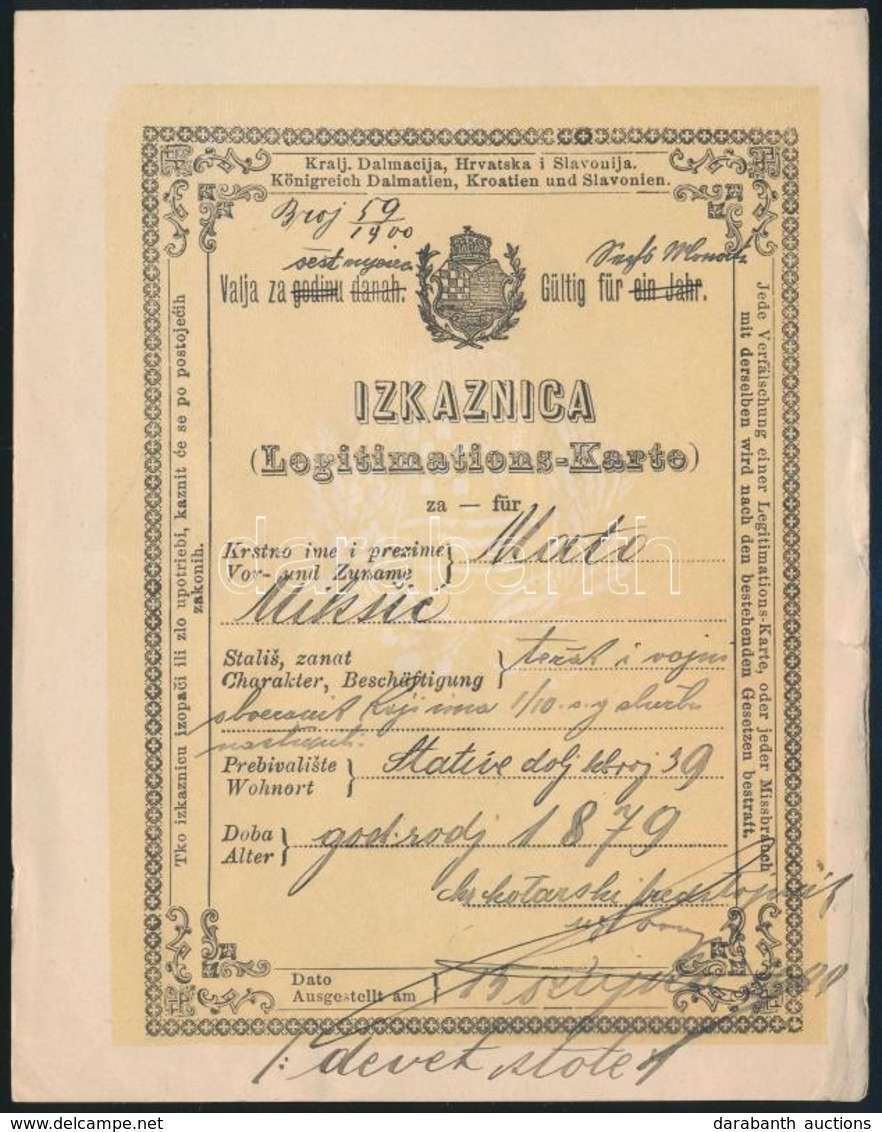 Kralj. Dalmacija, Hrvatska i Slavonija.
Königreich Dalmatien, Kroatien und Slavonien.
Broj 59/1900
šest
Valja za godinu danah.
Gültig für ein Jahr.
IZKAZNICA
(Legitimations-Karte)
za — für
Krstno ime i prezime
Vor- und Zuname
Mato
Mikšić
Stališ, zanat
Charakter, Beschäftigung
težak i vojni
koji ima 1/10
Prebivalište
Wohnort
Stative dolj broj 39
Doba
Alter
god. rodj 1879
kr kotarski predstojnik
Dato
Ausgestellt am
/: devet stote
Tko izkaznicu izopači ili zlo upotriebi, kaznit će se po postojećih
zakonih.
Jede Verfälschung einer Legitimations-Karte, oder jeder Missbrauch
mit derselben wird nach den bestehenden Gesetzen bestraft.
darabanth
darabanth auctions